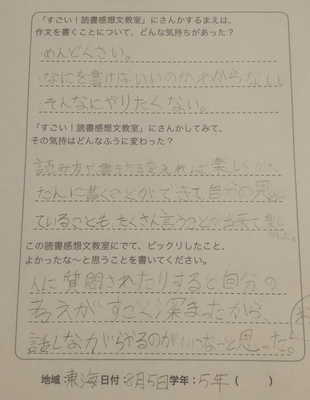 「すごい！読書感想文教室」にさんかするまえは、
作文を書くことについて、どんな気持ちがあった？
めんどくさい。
・なにを書けばいいのかわからない。
・そんなにやりたくない。
「すごい！読書感想文教室」にさんかしてみて、
その気持はどんなふうに変わった？
読み方や書き方を変えれば楽しくかん
たんに書くことができて自分の思っ
ていることも、たくさん言うことが出来て楽し
かった。
この読書感想文教室にでて、ビックリしたこと、
よかったな〜と思うことを書いてください。
人に質問されたりすると、自分の
考えがすごく深まったから、
話しながらやるのがいいな〜と思った。
地域:東海日付:8月5日学年:5年( )